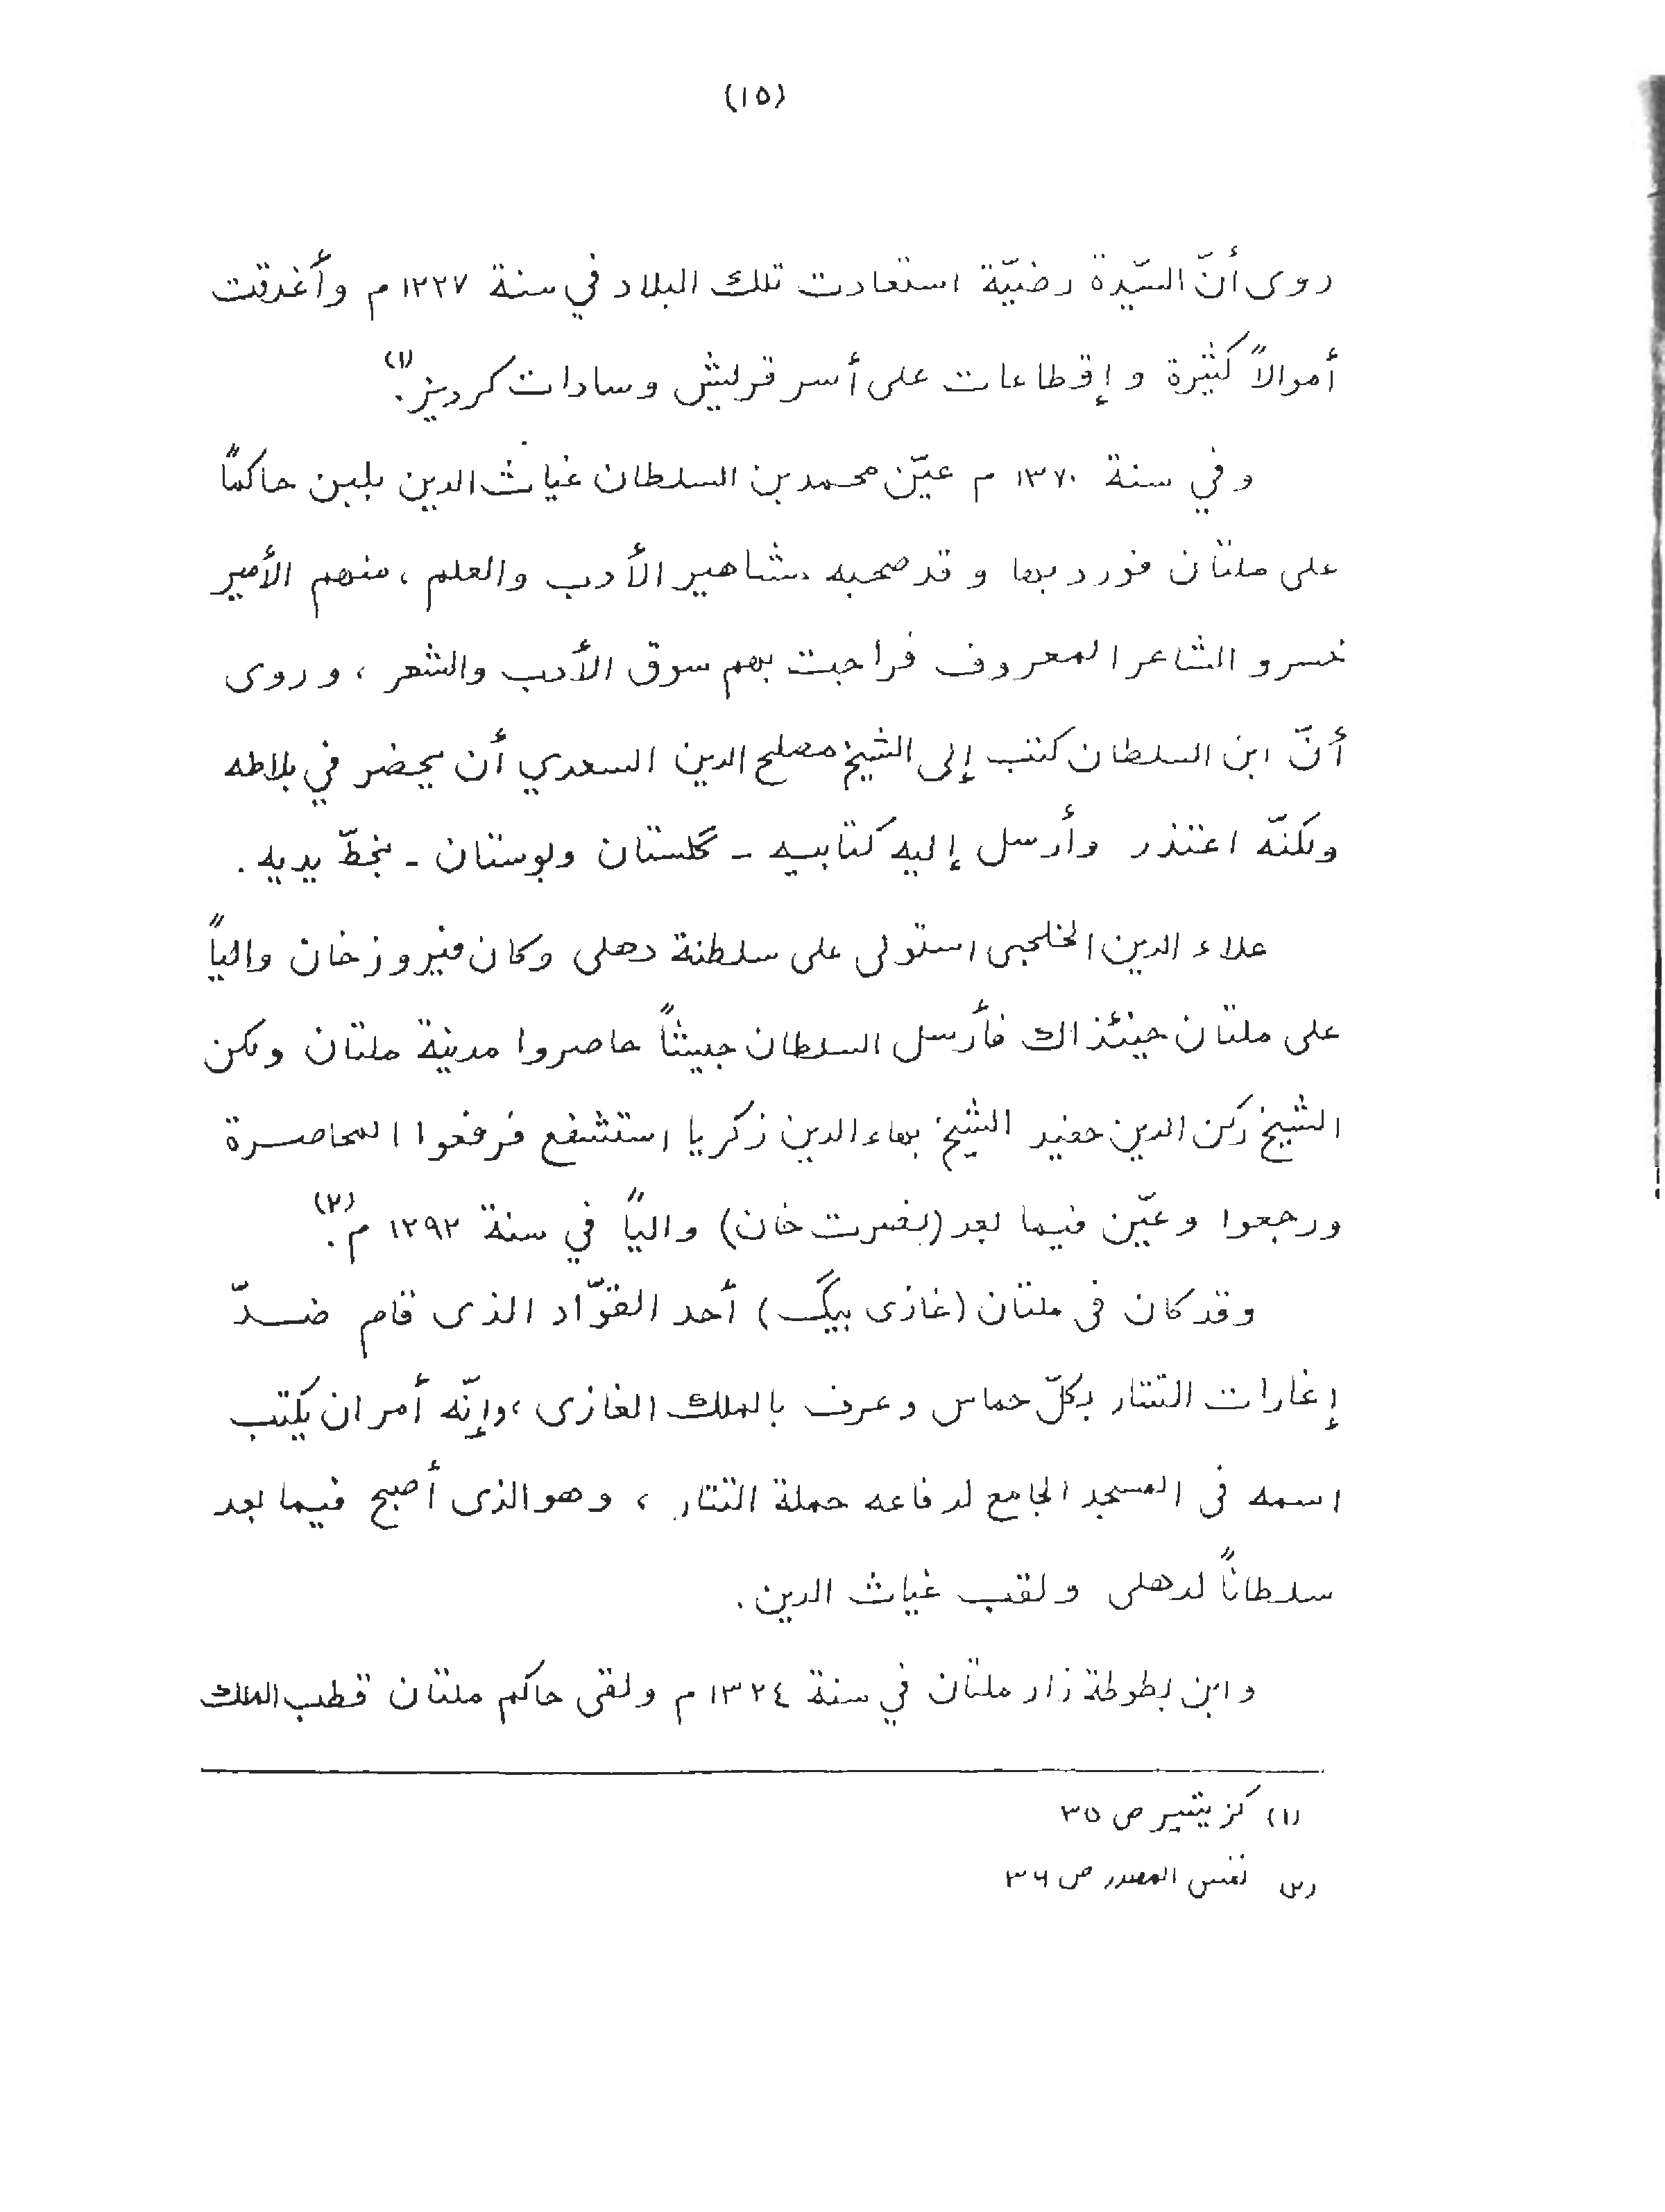 (١٥)
روى أنّ السّيّدة رضيّة استعادت تلك البلاد في سنة ١٢٢٧ م وأغدقت
أموالاً كثيرة و إقطاعات على أسر قريش وسادات كرديز.(١)
وفي سنة ١٣٧٠ م عيّن محمد بن السلطان غياث الدين بلبن حاكمًا
على ملتان فورد بها و قد صحبه مشاهير الأدب والعلم ، منهم الأمير
خسرو الشاعر المعروف فراجت بهم سوق الأدب والشعر ، و روى
أنّ ابن السلطان كتب إلى الشيخ مصلح الدين السعدي أن يحضر في بلاطه
ولكنّه اعتذر وأرسل إليه كتابيه - گلستان وبوستان - بخطّ يديه .
علاء الدين الخلجى استولى على سلطنة دهلى وكان فيروز خان والياً
على ملتان حينئذاك فأرسل السلطان جيشاً حاصروا مدينة ملتان ولكن
الشيخ ركن الدين حفيد الشيخ بهاء الدين زكريا استشفع فرفعوا المحاصرة
ورجعوا وعيّن فيما بعد (نصرت خان) والياً في سنة ١٢٩٢ م.(٢)
وقد كان فى ملتان (غازى بيگ) أحد القوّاد الذى قام ضدّ
إغارات التتار بكلّ حماس وعرف بالملك الغازى ، وإنّه أمر ان يكتب
اسمه فى المسجد الجامع لدفاعه حملة التتار ، وهو الذى أصبح فيما بعد
سلطاناً لدهلى ولقب غياث الدين .
وابن بطوطة زار ملتان في سنة ١٣٢٤ م ولقى حاكم ملتان قطب الملك
(١) گزيتير ص ٣٥
(٢) نفس المصدر ص ٣٦